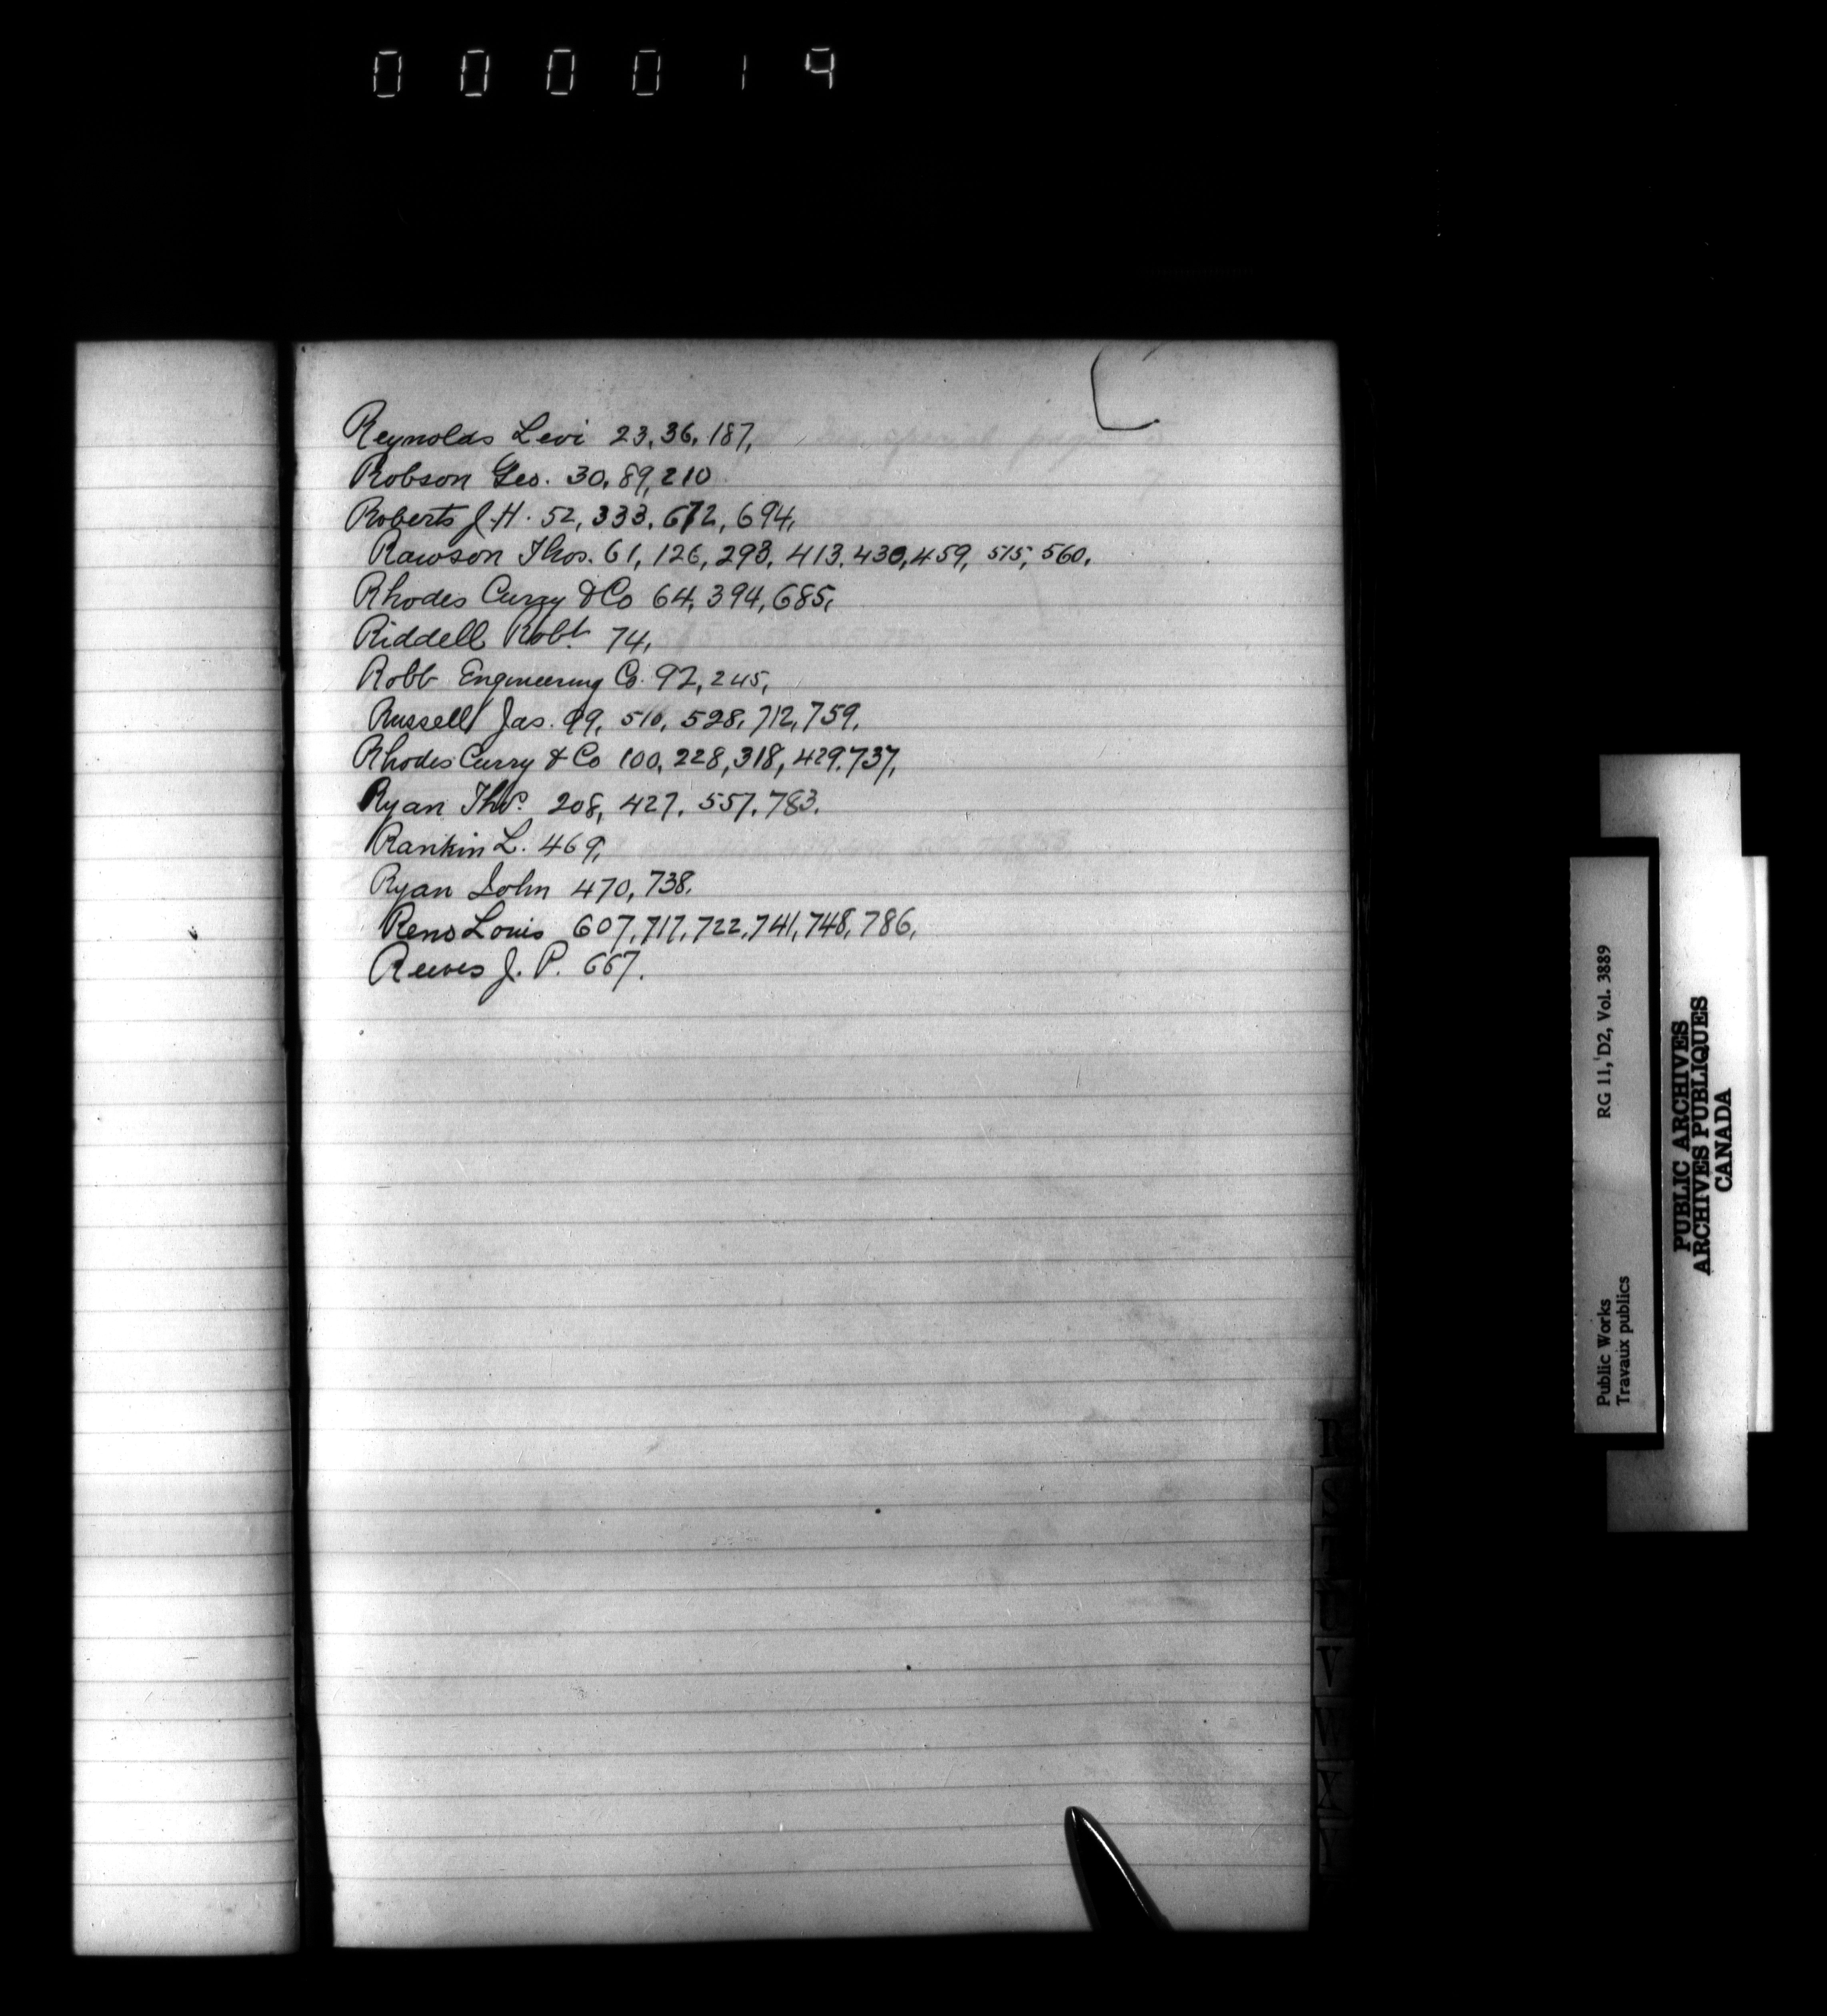 000019
Reynolds Levi 23, 36, 187,
Robson Geo. 30, 89, 210
Roberts J. H. 52, 333, 672, 694,
Rawson Thos. 61, 126, 293, 413, 430, 459, 515, 560,
Rhodes Curry & Co 64, 394, 685,
Riddell Robt. 74,
Robb Engineering Co. 92, 245,
Russell Jas. 99, 510, 528, 712, 759,
Rhodes Curry & Co 100, 228, 318, 429, 737,
Ryan Thos. 208, 427, 557, 783,
Rankin L. 469,
Ryan John 470, 738,
Reno Louis 607, 717, 722, 741, 748, 786,
Reeves J. P. 667.
R
S
T
U
V
W
X
Public Works
Travaux publics
RG 11, D2, Vol. 3889
PUBLIC ARCHIVES
ARCHIVES PUBLIQUES
CANADA